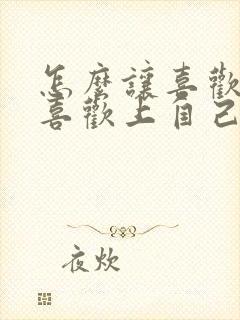 怎麼讓喜歡
喜歡上自己
夜炊